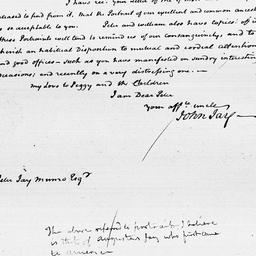 I have rec. your letter of the
pleased to find from it, that the Portrait of our excellent and common ancestor
is so acceptable to you. Peter and William also have copies: of it
these Portraits will tend to remind us of our consanguinity, and to
cherish an habitual Disposition to mutual and cordial attentions
and good offices — such as you have manifested on sundry interesting
occasions; and recently on a very distressing one. —
my Love to Peggy and the Children
I am Dear Peter
your affte. uncle
John Jay
Peter Jay Munro Esqr.
The above refers to portrait, I believe
is that of Augustus Jay who first came
to America